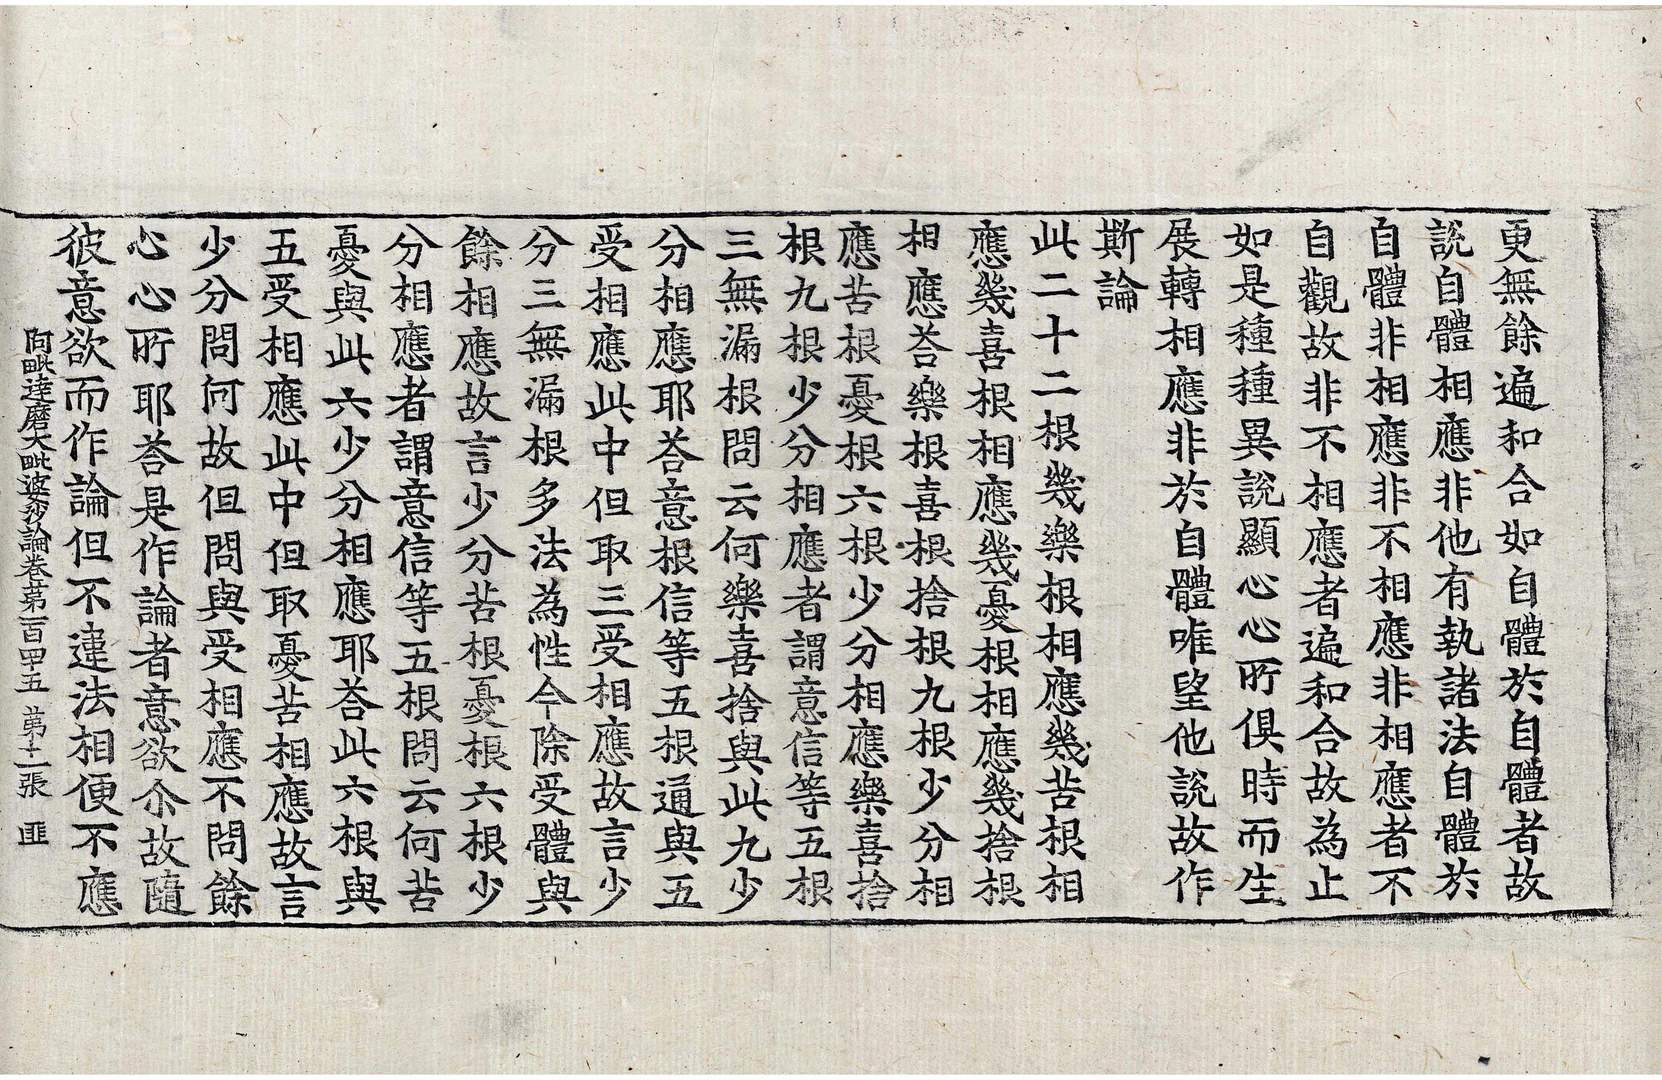 更無餘遍和合如自體於自體者故
說自體相應非他有執諸法自體於
自體非相應非不相應非相應者不
自觀故非不相應者遍和合故為止
如是種種異說顯心心所俱時而生
展轉相應非於自體唯望他說故作
斯論
此二十二根幾樂根相應幾苦根相
應幾喜根相應幾憂根相應幾捨根
相應荅樂根喜根捨根九根少分相
應苦根憂根六根少分相應樂喜捨
根九根少分相應者謂意信等五根
三無漏根問云何樂喜捨與此九少
分相應耶荅意根信等五根通與五
受相應此中但取三受相應故言少
分三無漏根多法為性今除受體與
餘相應故言少分苦根憂根六根少
分相應者謂意信等五根問云何苦
憂與此六少分相應耶荅此六根與
五受相應此中但取憂苦相應故言
少分問何故但問與受相應不問餘
心心所耶荅是作論者意欲尒故隨
彼意欲而作論但不違法相便不應
阿毗達磨大毗婆沙論卷苐一百四十五 苐十二張 匪